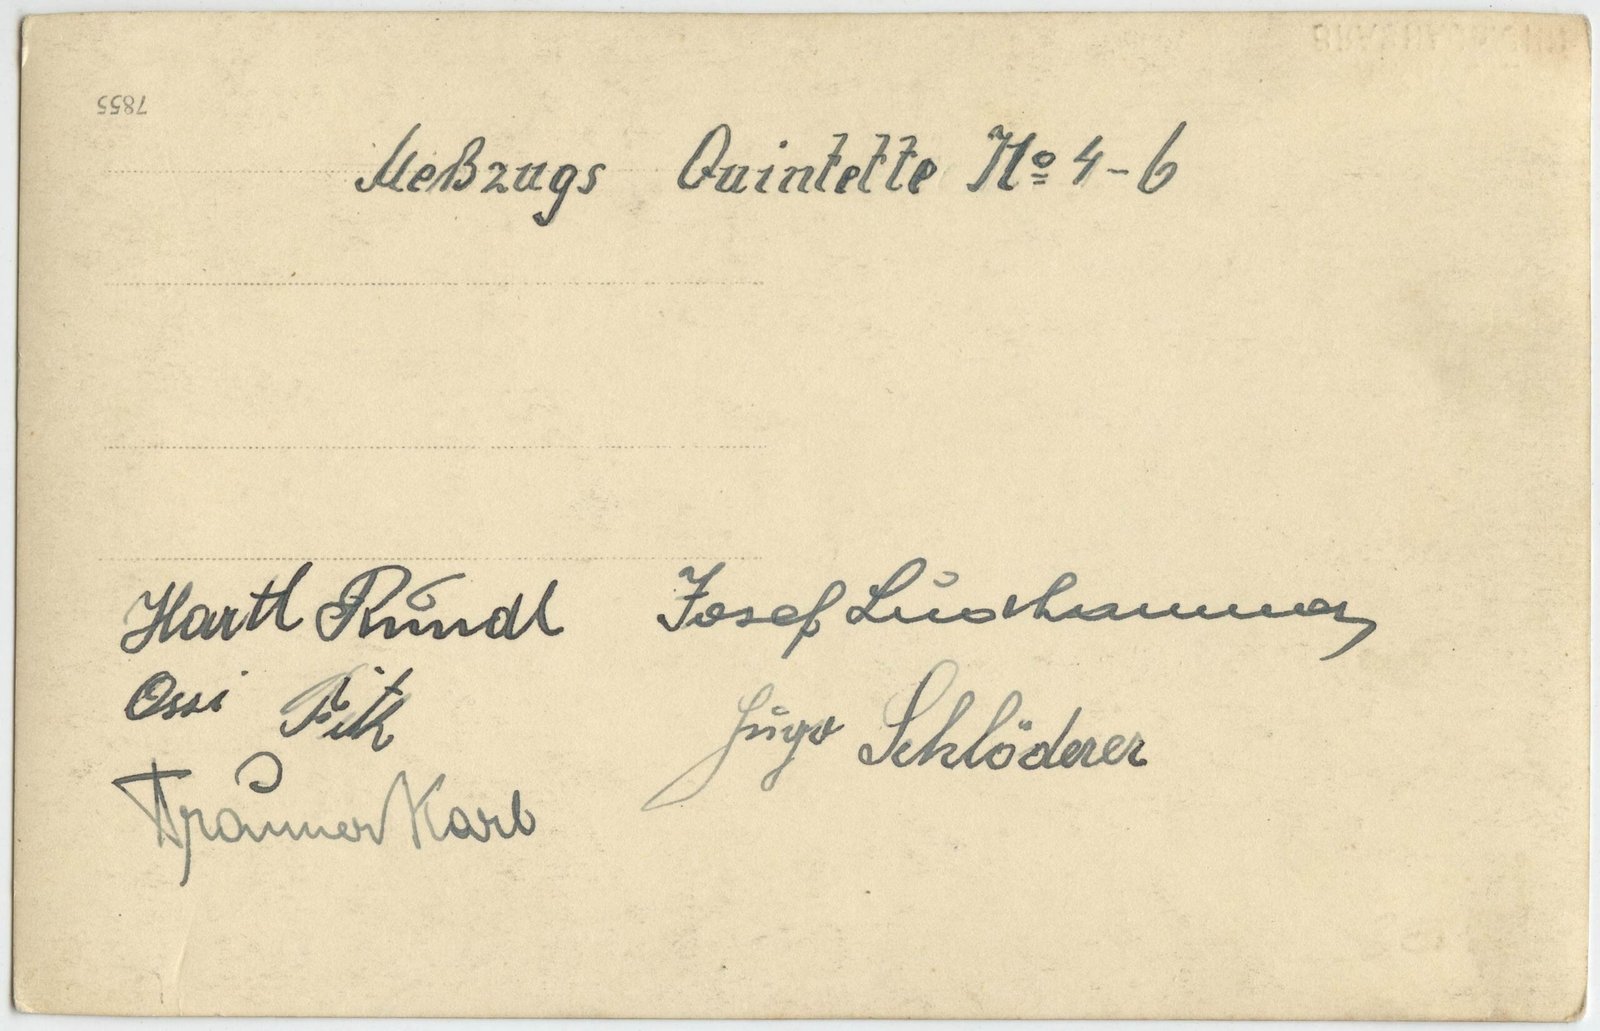 7855
Meßzugs Quintette No 4-6
Hartl Rundl Josef
Ossi Fith Hugo Schlöderer
Karl